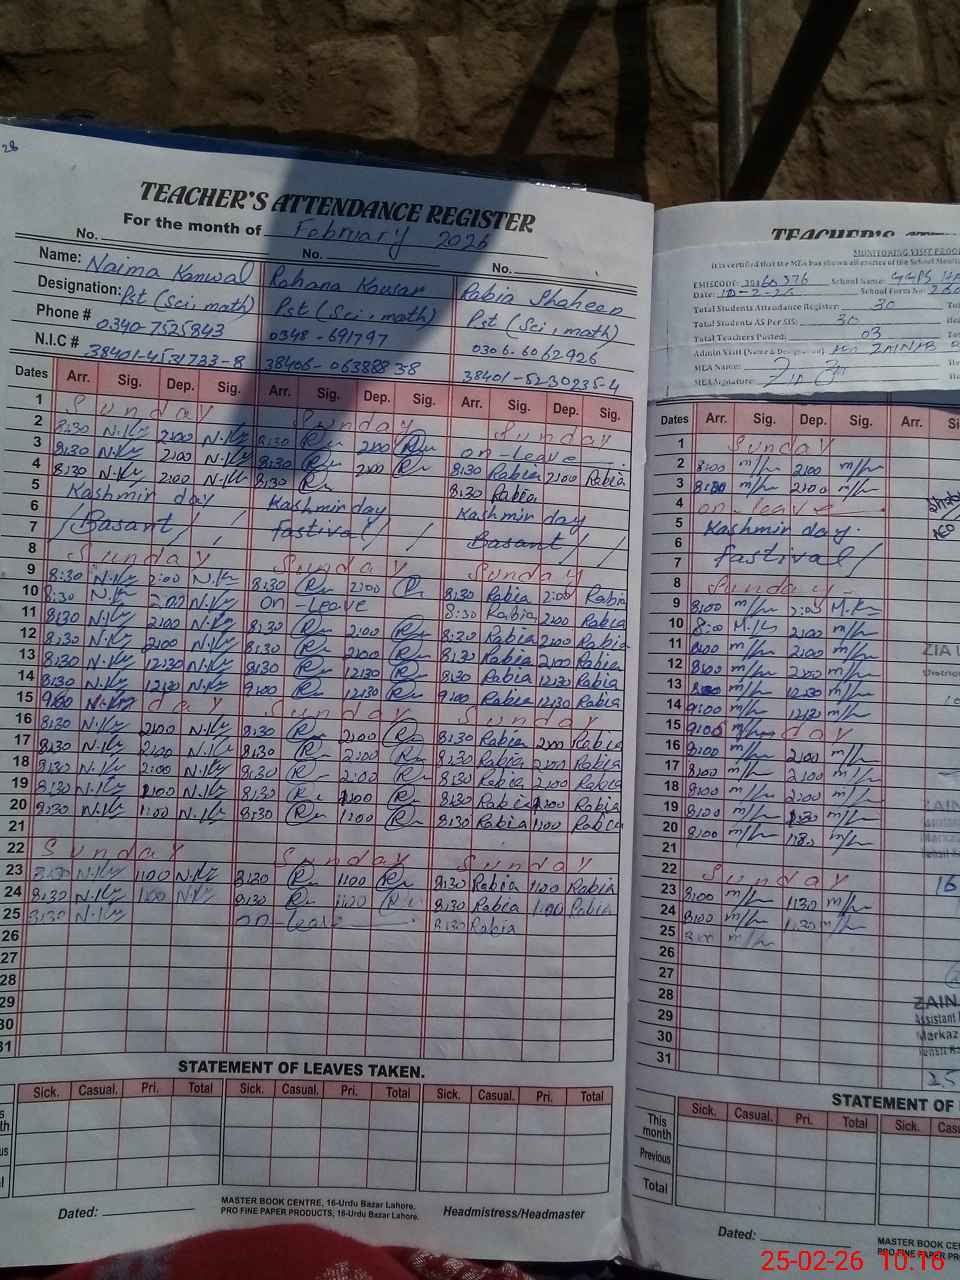 28
TEACHER'S ATTENDANCE REGISTER
For the month of February 2026
No. No. No.
Name: Naima Kanwal Rahana Kausar Rabia Shaheen
Designation: Pst (Sci, math) Pst (Sci, math) Pst (Sci, math)
Phone # 0340-7525843 0348-691797 0306-6062926
N.I.C # 38401-4531733-8 38406-0638888 38 38401-5230235-4
Dates Arr. Sig. Dep. Sig. Arr. Sig. Dep. Sig. Arr. Sig. Dep. Sig.
1 Sunday Sunday Sunday
2 8:30 N.K 2:00 N.K 8:30 R 2:00 R on-leave
3 8:30 N.K 2:00 N.K 8:30 R 2:00 R 8:30 Rabia 2:00 Rabia
4 8:30 N.K 2:00 N.K 8:30 R 8:30 Rabia
5 Kashmir day Kashmir day Kashmir day
6 Basant fastival Basant
7
8 Sunday Sunday Sunday
9 8:30 N.K 2:00 N.K 8:30 R 2:00 R 8:30 Rabia 2:00 Rabia
10 8:30 N.K 2:00 N.K on-leave 8:30 Rabia 2:00 Rabia
11 8:30 N.K 2:00 N.K 8:30 R 2:00 R 8:30 Rabia 2:00 Rabia
12 8:30 N.K 2:00 N.K 8:30 R 2:00 R 8:30 Rabia 2:00 Rabia
13 8:30 N.K 12:30 N.K 8:30 R 12:30 R 8:30 Rabia 12:30 Rabia
14 8:30 N.K 12:30 N.K 9:00 R 12:30 R 9:00 Rabia 12:30 Rabia
15 day Sunday Sunday
16 8:30 N.K 2:00 N.K 8:30 R 2:00 R 8:30 Rabia 2:00 Rabia
17 8:30 N.K 2:00 N.K 8:30 R 2:00 R 8:30 Rabia 2:00 Rabia
18 8:30 N.K 2:00 N.K 8:30 R 2:00 R 8:30 Rabia 2:00 Rabia
19 8:30 N.K 1:00 N.K 8:30 R 1:00 R 8:30 Rabia 1:00 Rabia
20 8:30 N.K 1:00 N.K 8:30 R 1:00 R 8:30 Rabia 1:00 Rabia
21
22 Sunday Sunday Sunday
23 8:30 N.K 1:00 N.K 8:30 R 1:00 R 8:30 Rabia 1:00 Rabia
24 8:30 N.K 1:00 N.K 8:30 R 1:00 R 8:30 Rabia 1:00 Rabia
25 8:30 N.K on-leave 8:30 Rabia
26
27
28
29
30
31
STATEMENT OF LEAVES TAKEN.
Sick. Casual. Pri. Total Sick. Casual. Pri. Total Sick. Casual. Pri. Total
Dated:
MASTER BOOK CENTRE, 16-Urdu Bazar Lahore.
PRO FINE PAPER PRODUCTS, 16-Urdu Bazar Lahore.
Headmistress/Headmaster
TEACHER'S
MONITORING VISIT PROO
It is certified that the MEA has shown all entries of the School Monito
School Name: GGPS
Date: 10-2-26 School Form No:
Total Students Attendance Register: 30
Total Students AS Per SIS: 30
Total Teachers Posted: 03
Admin Visit (Name & Designation) AEO ZAINAB
MEA Name:
MEA Signature:
Dates Arr. Sig. Dep. Sig. Arr.
1 Sunday
2 8:00 2:00
3 8:00 2:00
4 on-leave
5 Kashmir day.
6 fastival
7
8 Sunday
9 8:00 2:00
10 8:00 2:00
11 8:00 2:00
12 8:00 2:00
13 8:00 12:30
14 9:00 12:30
15 day
16 9:00 2:00
17 8:00 2:00
18 8:00 2:00
19 8:00
20 8:00
21
22 Sunday
23 8:00 1:30
24 8:00 1:30
25 8:00
26
27
28
29
30
31
AEO
ZIA
16
ZAIN
Assistant
Markaz
25
STATEMENT OF
Sick. Casual. Pri. Total Sick.
This month
Previous
Total
Dated:
MASTER BOOK CE
PRO FINE PAPER PR
25-02-26 10:16